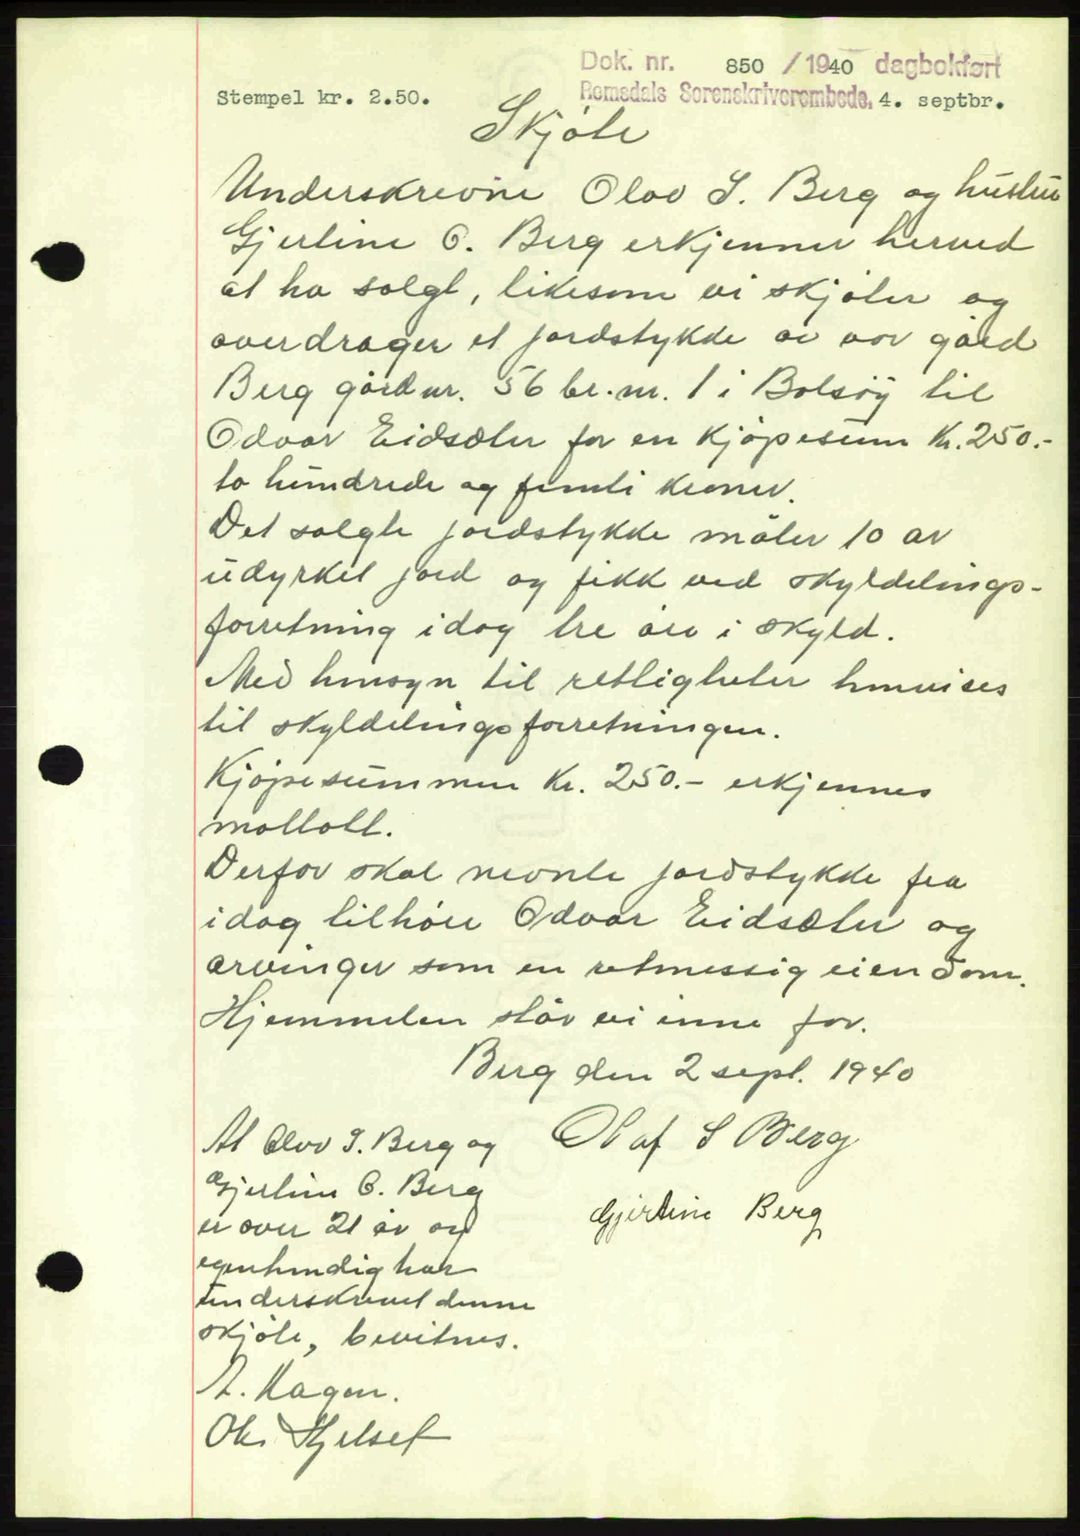 Dok. nr. 850 / 1940 dagbokført
Stempel kr. 2.50. Romsdals Sorenskriverembede, 4. septbr.
Skjöte
Underskrevne Olav S. Berg og hustru
Gjertine O. Berg erkjenner herved
at ha solgt, likesom vi skjöter og
overdrager et jordstykke av vor gård
Berg gårdnr. 56 br.nr. 1 i Bolsöy til
Odvar Eidsæter for en kjöpesum Kr. 250.-
to hundrede og femti kroner.
Det solgte jordstykke måler 10 ar
udyrket jord og fikk ved skyldelings-
forretning idag tre öre i skyld.
Med hensyn til rettigheter henvises
til skyldelingsforretningen.
Kjöpesummen Kr. 250.- erkjennes
mottatt.
Derfor skal nevnte jordstykke fra
idag tilhöre Odvar Eidsæter og
arvinger som en retmessig eiendom.
Hjemmelen står vi inne for.
Berg den 2 sept. 1940
At Olav S. Berg og
Gjertine O. Berg
er over 21 år og
egenhendig har
underskrevet denne
skjöte, bevitnes.
Olaf S Berg
Gjertine Berg
A. Hagen.
Ole Hjelset